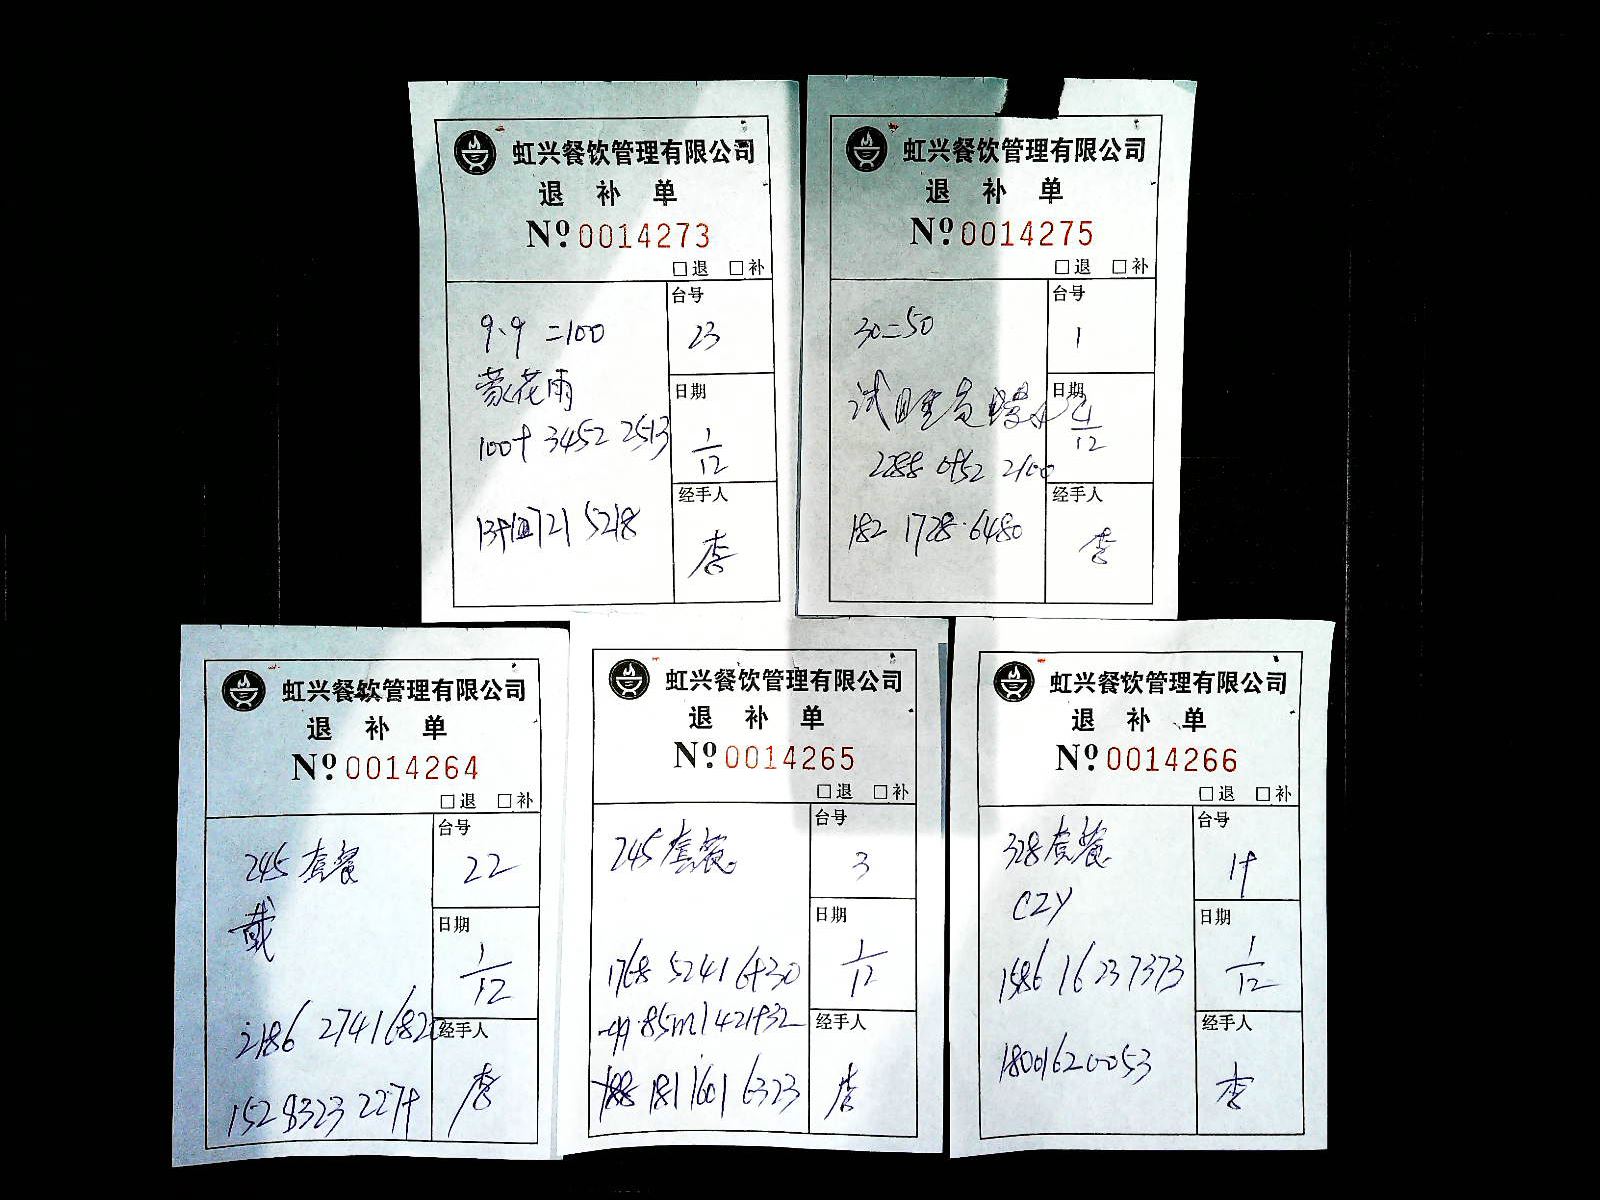 虹兴餐饮管理有限公司
退 补 单
Nº 0014273
□退 □补
台号
23
9.9 =100
蒙花雨
日期
1/12
经手人
李
虹兴餐饮管理有限公司
退 补 单
Nº 0014275
□退 □补
台号
1
30=50
日期
经手人
李
182 1728·6480
虹兴餐饮管理有限公司
退 补 单
Nº 0014264
□退 □补
台号
22
245套餐
日期
1/12
经手人
李
虹兴餐饮管理有限公司
退 补 单
Nº 0014265
□退 □补
台号
3
245套餐
日期
1/12
经手人
李
虹兴餐饮管理有限公司
退 补 单
Nº 0014266
□退 □补
台号
328套餐
CZY
日期
1/12
1586 16237373
经手人
李
18001620053